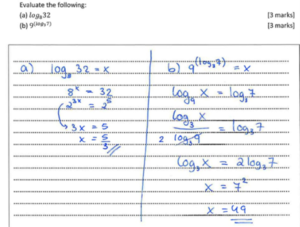 Evaluate the following:
(a) log₈32 [3 marks]
(b) 9^(log₃7) [3 marks]
a) log₈ 32 = x
8ˣ = 32
2³ˣ = 2⁵
3x = 5
x = 5/3
b) 9^(log₃7) = x
log₉ x = log₃ 7
log₃ x / log₃ 9 = log₃ 7
2
log₃ x = 2 log₃ 7
x = 7²
x = 49